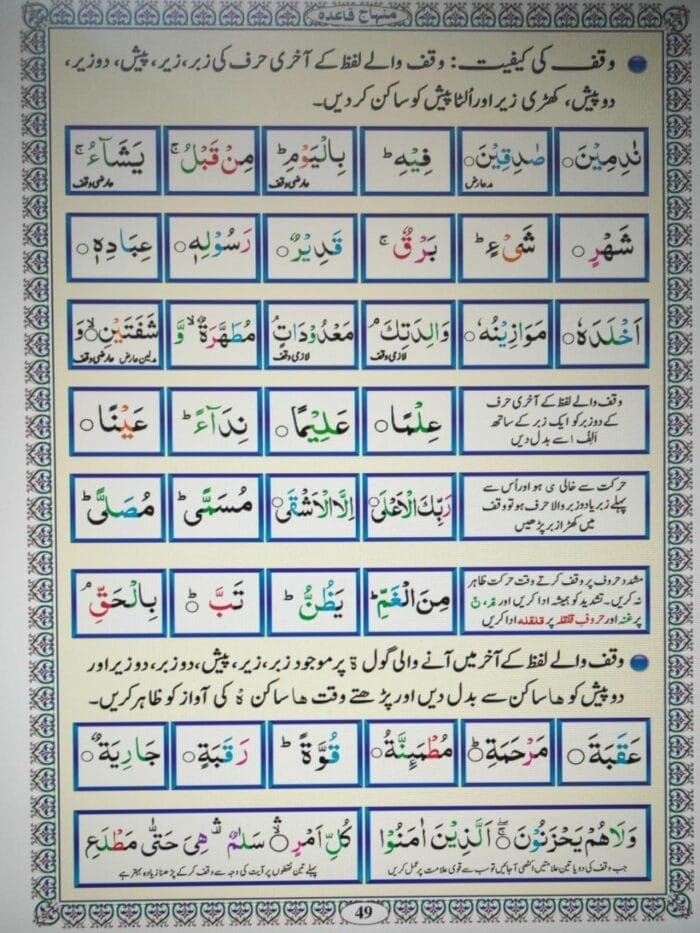 منہاج قاعدہ
وقف کی کیفیت: وقف والے لفظ کے آخری حرف کی زبر، زیر، پیش، دو زیر،
دو پیش، کھڑی زیر اور اُلٹا پیش کو ساکن کر دیں۔
نٰدِمِیْنَ○ صٰدِقِیْنَ○ فِیْهِ ؕ بِالْیَوْمِ ؕ مِنْ قَبْلُ ۚ یَشَآءُ ۚ
مد عارض عارضی وقف عارضی وقف
شَهْرٍ○ شَیْءٍ ؕ بَرْقٌ ۚ قَدِیْرٌ○ رَسُوْلِهٖ○ عِبَادِهٖ○
اَخْلَدَهٗ○ مَوَازِیْنُهٗ○ وَالِدَتِكَ ۘ مَعْدُوْدَاتٍ ؕ مُطَهَّرَةٌ ۙ وَّ شَفَتَیْنِ○ۙ وَ
لازمی وقف لازمی وقف مد لین عارض عارضی وقف
وقف والے لفظ کے آخری حرف
کے دو زبر کو ایک زبر کے ساتھ
الف سے بدل دیں
عِلْمًا○ عَلِیْمًا○ نِدَآءً ؕ عَیْنًا○
حرکت سے خالی ی ہو اور اُس سے
پہلے زبر یا دو زبر والا حرف ہو تو وقف
میں کھڑا زبر پڑھیں
رَبِّكَ الْاَعْلَی○ اِلَّا الْاَشْقَی○ مُسَمًّی ؕ مُصَلًّی ؕ
مشدد حروف پر وقف کرتے وقت حرکت ظاہر
نہ کریں۔ تشدید کو ہمیشہ ادا کریں اور مّ، نّ
پر غنہ اور حروف قلقلہ پر قلقلہ ادا کریں
مِنَ الْغَمِّ ؕ یَظُنُّ ؕ تَبَّ ○ؕ بِالْحَقِّ ۘ
وقف والے لفظ کے آخر میں آنے والی گول ة پر موجود زبر، زیر، پیش، دو زبر، دو زیر اور
دو پیش کو ھا ساکن سے بدل دیں اور پڑھتے وقت ھا ساکن هْ کی آواز کو ظاہر کریں۔
عَقَبَةَ○ مَرْحَمَةِ○ؕ مُطْمَئِنَّةُ○ قُوَّةً ؕ رَقَبَةٍ○ جَارِیَةٌ○
وَلَا هُمْ یَحْزَنُوْنَ○ اَلَّذِیْنَ اٰمَنُوْا
جب وقف کی دو یا تین علامتیں اکٹھی آ جائیں تو سب سے قوی علامت پر عمل کریں
كُلِّ اَمْرٍ○ۙ سَلٰمٌ ۛ هِیَ حَتّٰی مَطْلَعِ
پہلے تین نقطوں پر آیت کی وجہ سے وقف کر کے پڑھنا زیادہ بہتر ہے
49